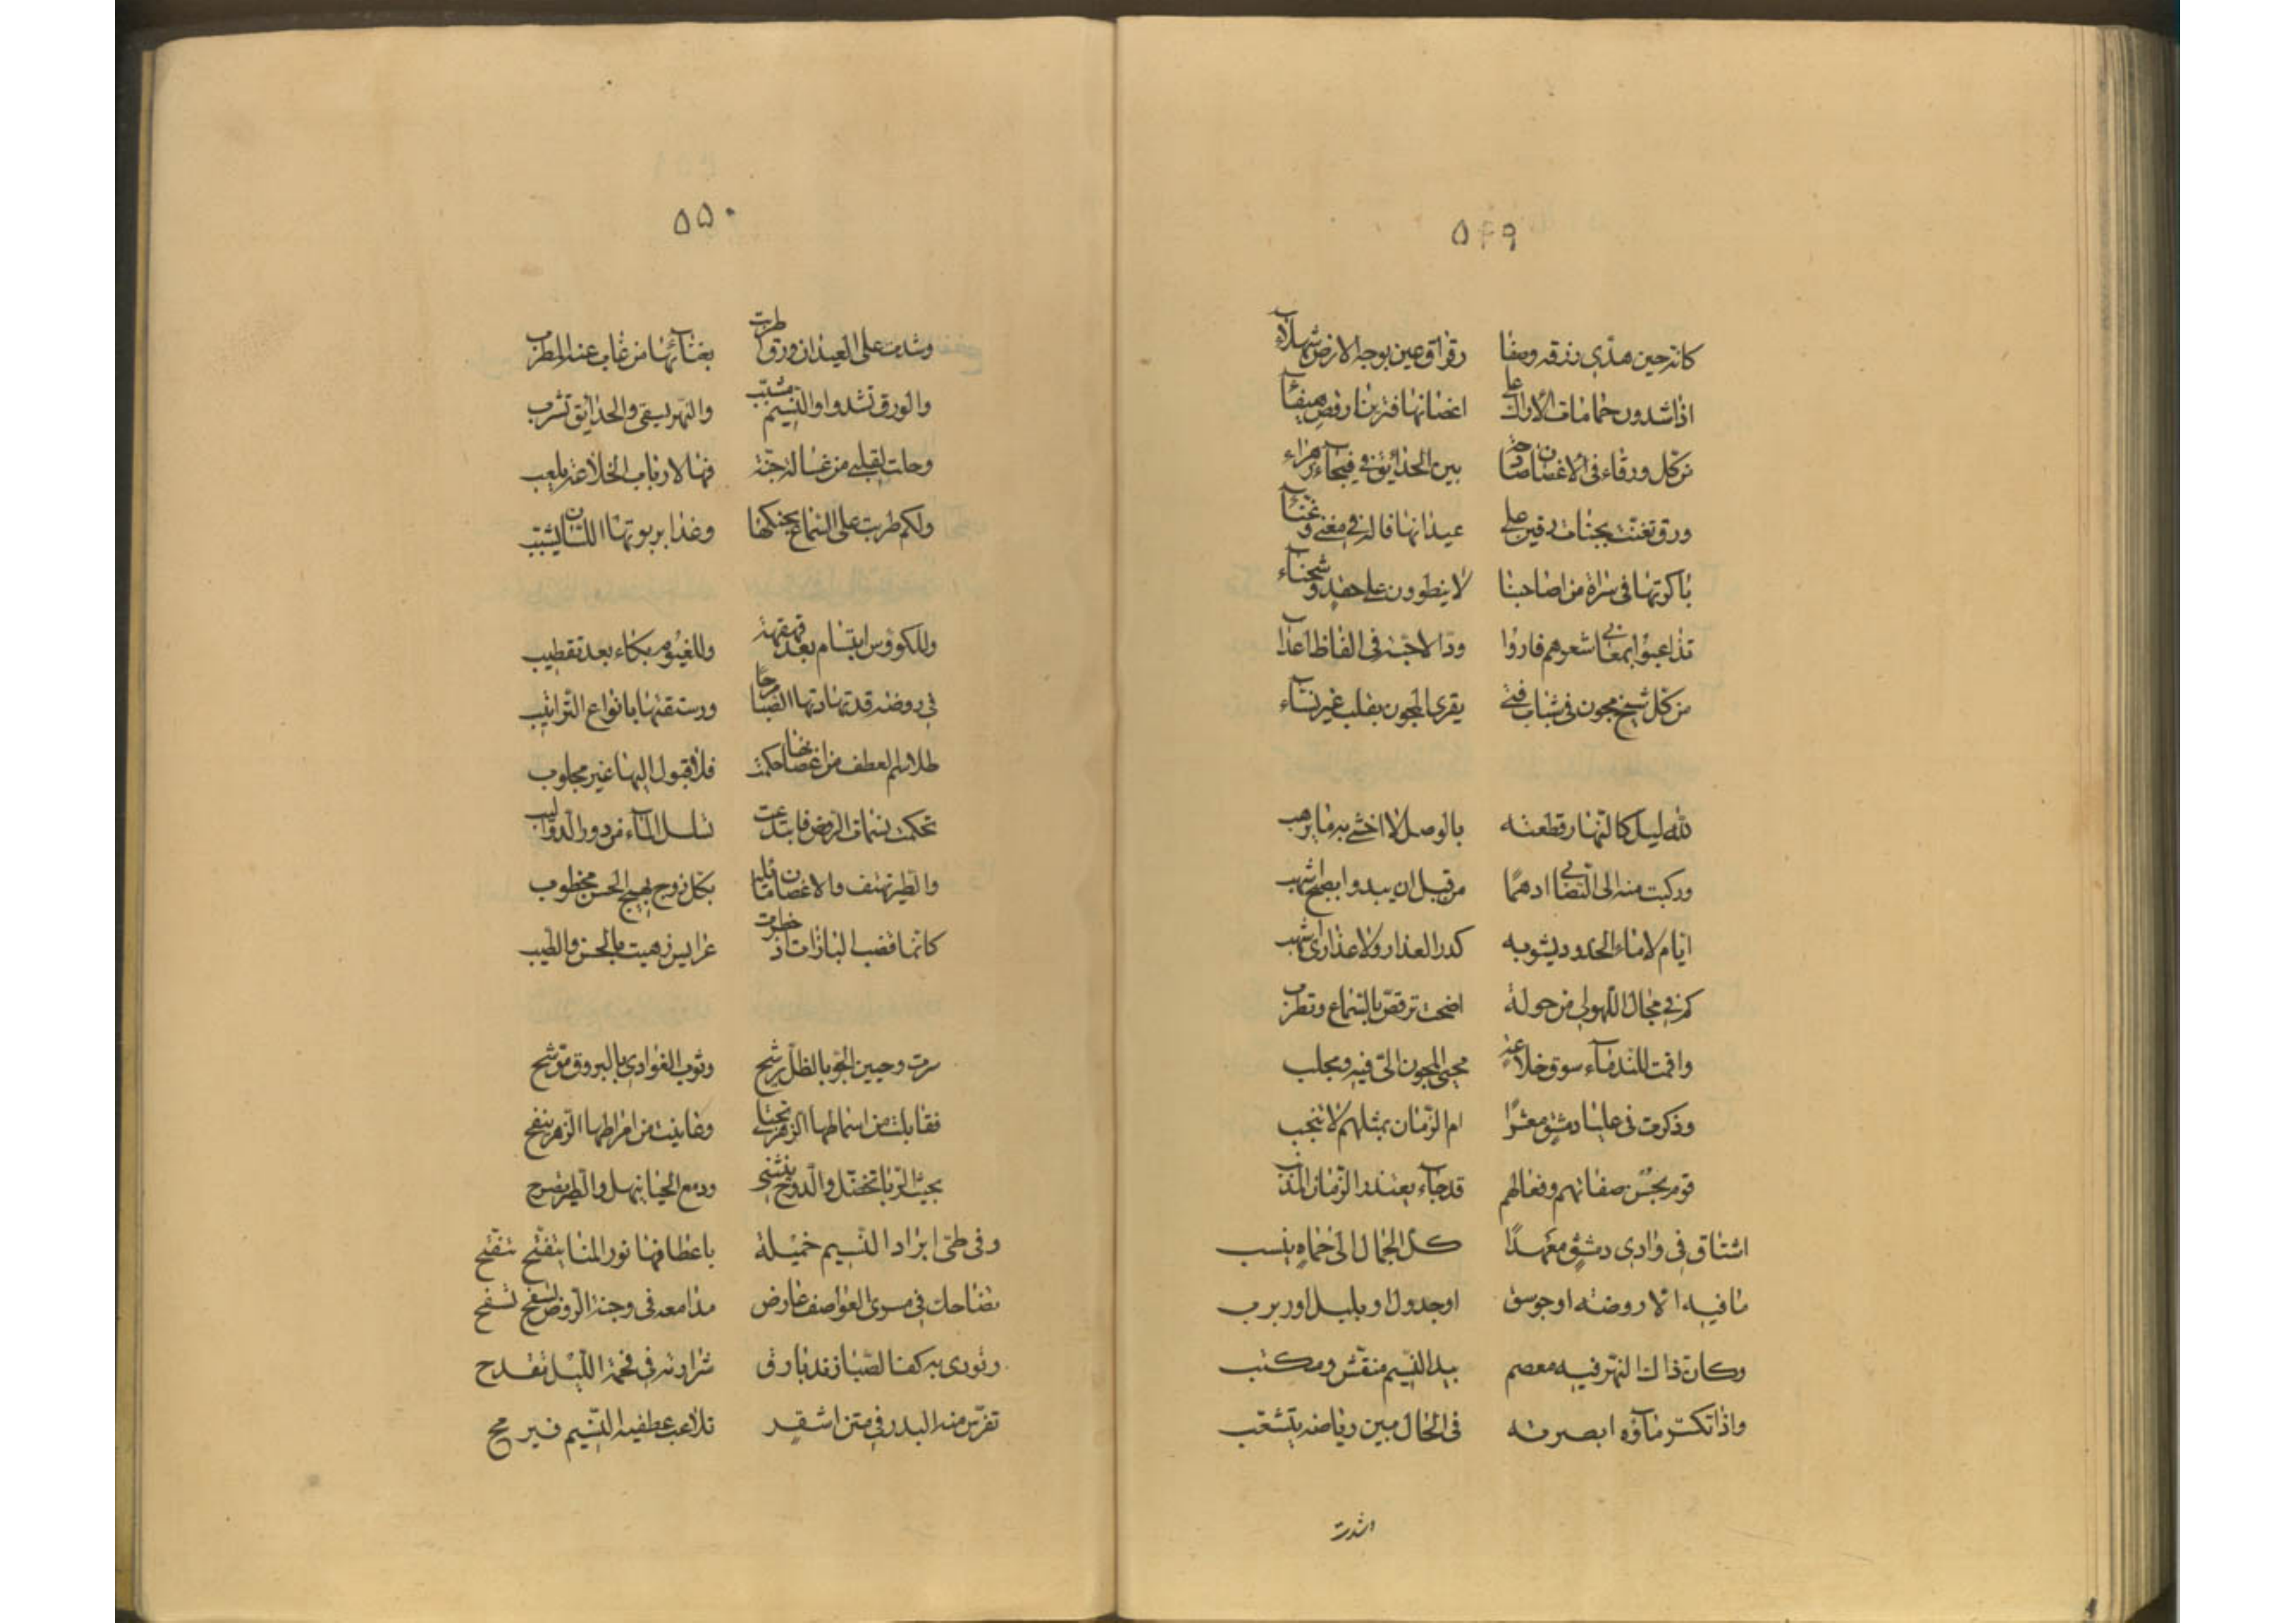 ٥٤٩
كانه حين هدّى رزقه وصفا رقراق عين بوجه الارض شهلآء
اذا شدون حمامات الاراك على اغصانها فتريبنا رقص هيفآء
من كل ورقاء فى الاغصان صادحة بين الحدائق فى فيحآء زهراء
ورق تغنّت بجنات رقين على عيدانها قاله فى مغنى وغنآء
باكرتها فى سراة من اصاحبنا لا ينطوون على حقد وشحنآء
تداعبوا بمعانى شعرهم فاروا ودّ الاحبّة فى الفاظ اعدآ
من كل شيخ مجون فى شباب فتى يقرى المجون بقلب غير نسّآء
لله ليل كالنهار قطعته بالوصل لا اخشى به ما يرهب
وركبت منه الى التصابى ادهمًا من قبل ان يبدو الصبح اشهب
ايام لا ماء الخدود يشوبه كدر العذار ولا عذارى اشهب
كم فى مجال اللهو لى من جولة اضحت ترقص بالسماع وتطرب
واقمت للندمآء سوق خلاعةٍ يجبى المجون الىّ فيه ويجلب
وذكرت فى عليا دمشق معشرًا ام الزمان بمثلهم لا تنجب
قوم بحسن صفاتهم وفعالهم قد جآء يعتذر الزمان المذنب
اشتاق فى وادى دمشق معهدًا كل الجمال الى حماه ينسب
ما فيه الا روضة او جوسق او جدول او بلبل او ربرب
وكان ذاك النهر فيه معصم بيد النسيم منقّش ومكتب
واذا تكسّر مآؤه ابصرته فى الحال بين رياضه يتشعّب
وشدت
٥٥٠
وشدت على العيدان ورق اطربت بغنآئها من غاب عنه المطرب
والورق تشدو او النسيم مشبّب والنهر يسقى والحدايق تشرب
وحلت لقلبى من غسالة جنّة فيها لارباب الخلاعة ملعب
ولكم طربت على السماع بجنكها وغدا بربوتها اللسان يشبّب
وللكووس ابتسام بعد قهقهة وللغيوم بكاء بعد تقطيب
فى روضة قد تهادتها الصبا مرحًا ورستقتها بانواع التراتيب
تحكمت نسمات الروض فابتدعت تسلسل المآء من دور الدواليب
والطير تهتف والاغصان مائلة بكل زوج بهيج الحسن مخطوب
كانما قضب البانات اذ خطرت عرايس زهيت بالحسن والطيب
سرت وجبين الجو بالطلّ يرشح وثوب الغوادى بالبروق موشّح
وفى طىّ ابراد النسيم خميلة باعطافها نور المنا يتفتّح تتفتّح
تضاحك فى مسرى العواصف عارض مدامعه فى وجنة الروض تسفح تسفح
وتورى به كفّ الصّبا زند بارق شرارته فى فحمة الليل تقدح
تفرّس منه البدر فى متن اشقرٍ تلاعب عطفيه النسيم فيرمح